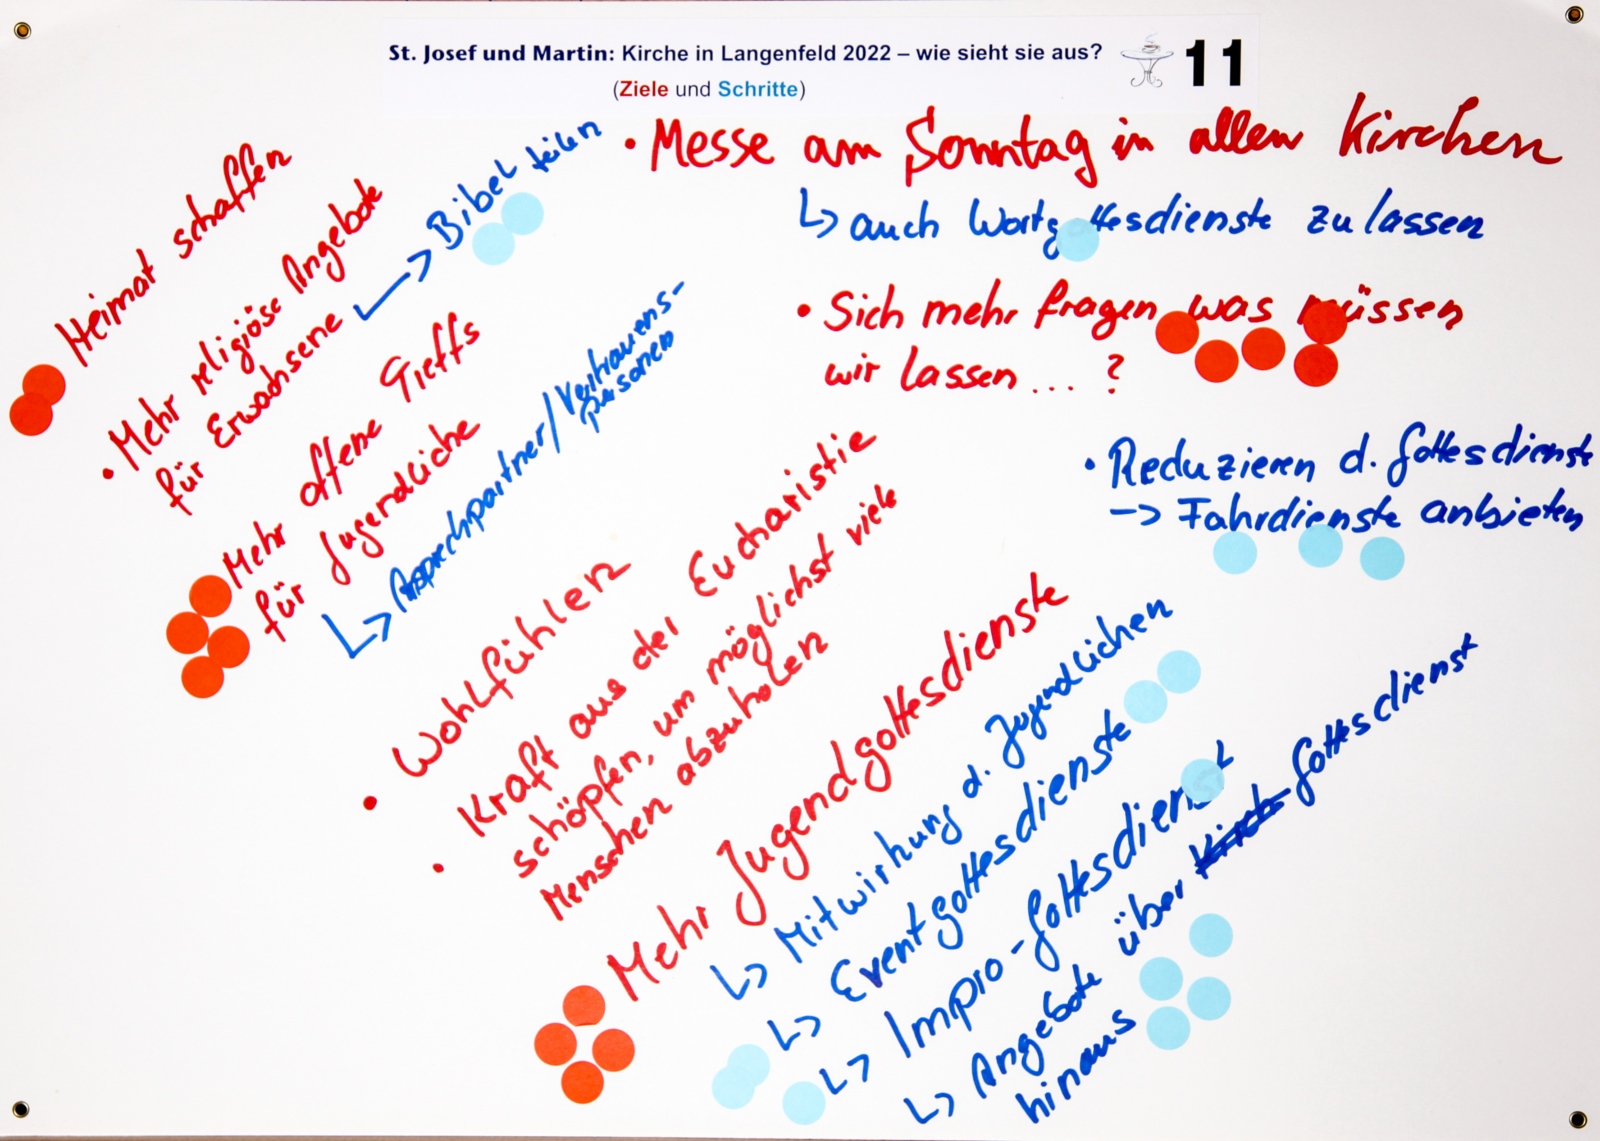 St. Josef und Martin: Kirche in Langenfeld 2022 – wie sieht sie aus?
(Ziele und Schritte)
11
• Messe am Sonntag in allen Kirchen
↳ auch Wortgottesdienste zulassen
• Sich mehr fragen was müssen
wir lassen ... ?
• Reduzieren d. Gottesdienste
-> Fahrdienste anbieten
Heimat schaffen
• Mehr religiöse Angebote
für Erwachsene
↳ Bibel teilen
Mehr offene Treffs
für Jugendliche
↳ Ansprechpartner/Vertrauens-
personen
• Wohlfühlen
• Kraft aus der Eucharistie
schöpfen, um möglichst viele
Menschen abzuholen
Mehr Jugendgottesdienste
↳ Mitwirkung d. Jugendlichen
↳ Eventgottesdienste
↳ Impro-Gottesdienst
↳ Angebote über Gottesdienst
hinaus